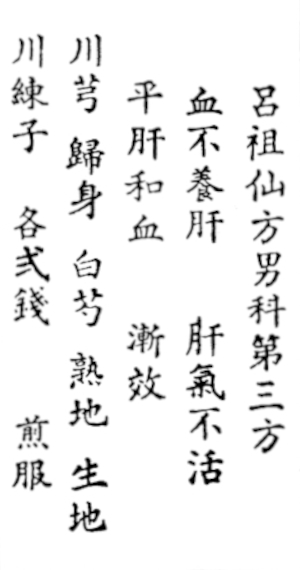 呂祖仙方男科第三方
血不養肝 肝氣不活
平肝和血 漸效
川芎 歸身 白芍 熟地 生地
川練子 各弍錢 煎服